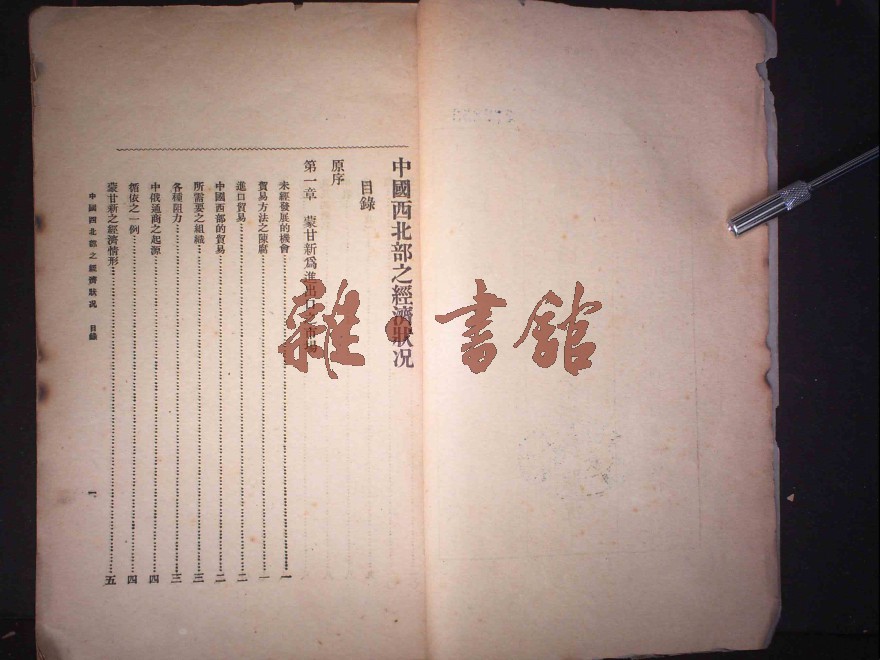 中國西北部之經濟狀況
目錄
原序
第一章 蒙甘新為進出口之市場
未經發展的機會 一
貿易方法之陳腐 一
進口貿易 二
中國西部的貿易 二
所需要之組織 三
各種阻力 三
中俄通商之起源 四
循依之一例 四
蒙甘新之經濟情形 五
中國西北部之經濟狀況 目錄
一
雜·書館